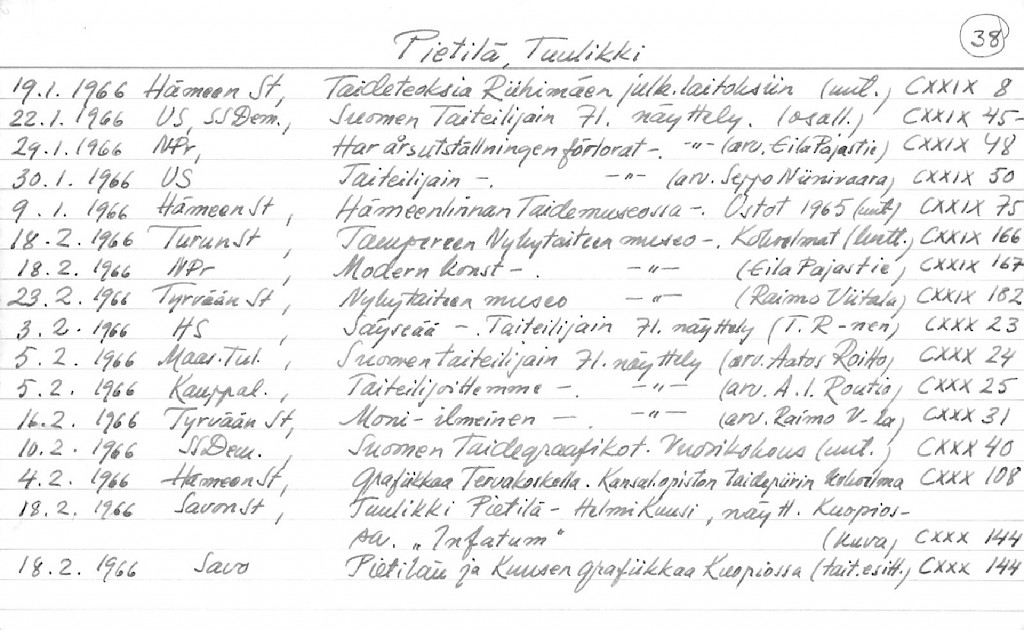 38
Pietilä, Tuulikki
19.1. 1966 Hämeen St, Taideteoksia Riihimäen julk. laitoksiin (uut.) CXXIX 8
22.1. 1966 US, SSDem., Suomen Taiteilijain 71. näyttely. (osall.) CXXIX 45-
29.1. 1966 NPr, Har årsutställningen förlorat -. -"- (arv. Eila Pajastie) CXXIX 48
30.1. 1966 US Taiteilijain -. -"- (arv. Seppo Niinivaara) CXXIX 50
9.1. 1966 Hämeen St, Hämeenlinnan Taidemuseossa -. Ostot 1965 (uut.) CXXIX 75
18.2. 1966 Turun St, Tampereen Nykytaiteen museo -. Kokoelmat CXXIX 166
18.2. 1966 NPr, Modern konst -. -"- (Eila Pajastie) CXXIX 167
23.2. 1966 Tyrvään St, Nykytaiteen museo -"- (Raimo Viitala) CXXIX 182
3.2. 1966 HS, Säyseää -. Taiteilijain 71. näyttely (T. R-nen) CXXX 23
5.2. 1966 Maas. Tul., Suomen taiteilijain 71. näyttely (arv. Aatos Roitto) CXXX 24
5.2. 1966 Kauppal., Taiteilijoittemme -. -"- (arv. A. I. Routio) CXXX 25
16.2. 1966 Tyrvään St, Moni-ilmeinen -. -"- (arv. Raimo V-la) CXXX 31
10.2. 1966 SSDem., Suomen Taidegraafikot. Vuosikokous (uut.) CXXX 40
4.2. 1966 Hämeen St, Grafiikkaa Tervakoskella. Kansal.opiston taidepiirin CXXX 108
18.2. 1966 Savon St, Tuulikki Pietilä - Helmi Kuusi, näytt. Kuopios-
sa. "Infatum" (kuva) CXXX 144
18.2. 1966 Savo Pietilän ja Kuusen grafiikkaa Kuopiossa (tait. esitt.) CXXX 144